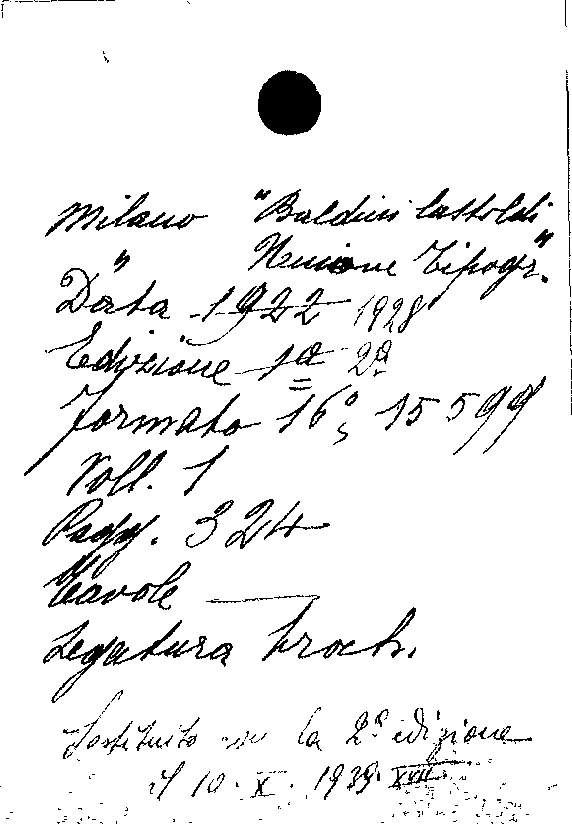 Milano "Baldini Castoldi"
" Unione Tipogr.
Data 1922 1928
Edizione 1a 2a
formato 16°, 15599
Voll. 1
Pagg. 324
Tavole —
Legatura broch.
Sostituito con la 2a edizione
il 10. X. 1939. XVII